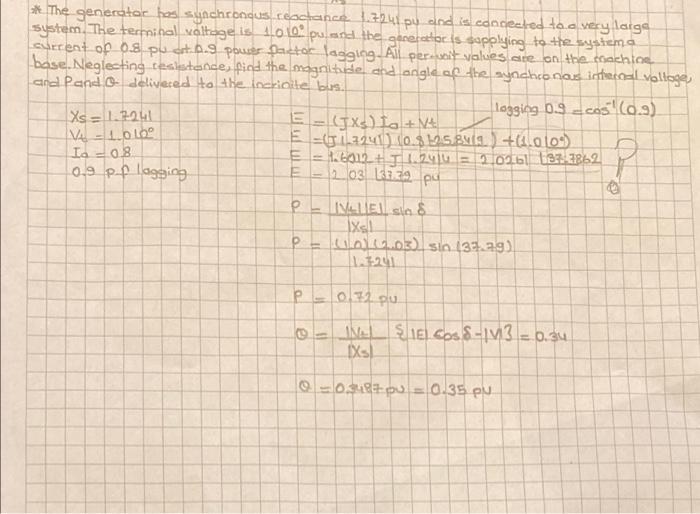 * The generator has synchronous reactance 1.7241 pu and is connected to a very large
system. The terminal voltage is 1.0∠0° pu and the generator is supplying to the system a
current of 0.8 pu at 0.9 power factor lagging. All per-unit values are on the machine
base. Neglecting resistance, find the magnitude and angle of the synchronous internal voltage,
and P and Q delivered to the infinite bus.
lagging 0.9 = cos⁻¹(0.9)
Xs = 1.7241
Vt = 1.0∠0°
Ia = 0.8
0.9 p.f lagging
E = (JXs) Ia + Vt
E = (J1.7241) (0.8∠25.8419) + (1.0∠0°)
E = 1.6012 + J 1.2414 = 2.0261 ∠37.7862
E = 2.03 ∠37.79 pu
P = |Vt||E| sin δ
|Xs|
P = (1.0) (2.03) sin (37.79)
1.7241
P = 0.72 pu
Q = |Vt| {|E| cos δ - |V|} = 0.34
|Xs|
Q = 0.3487 pu = 0.35 pu
P
Q